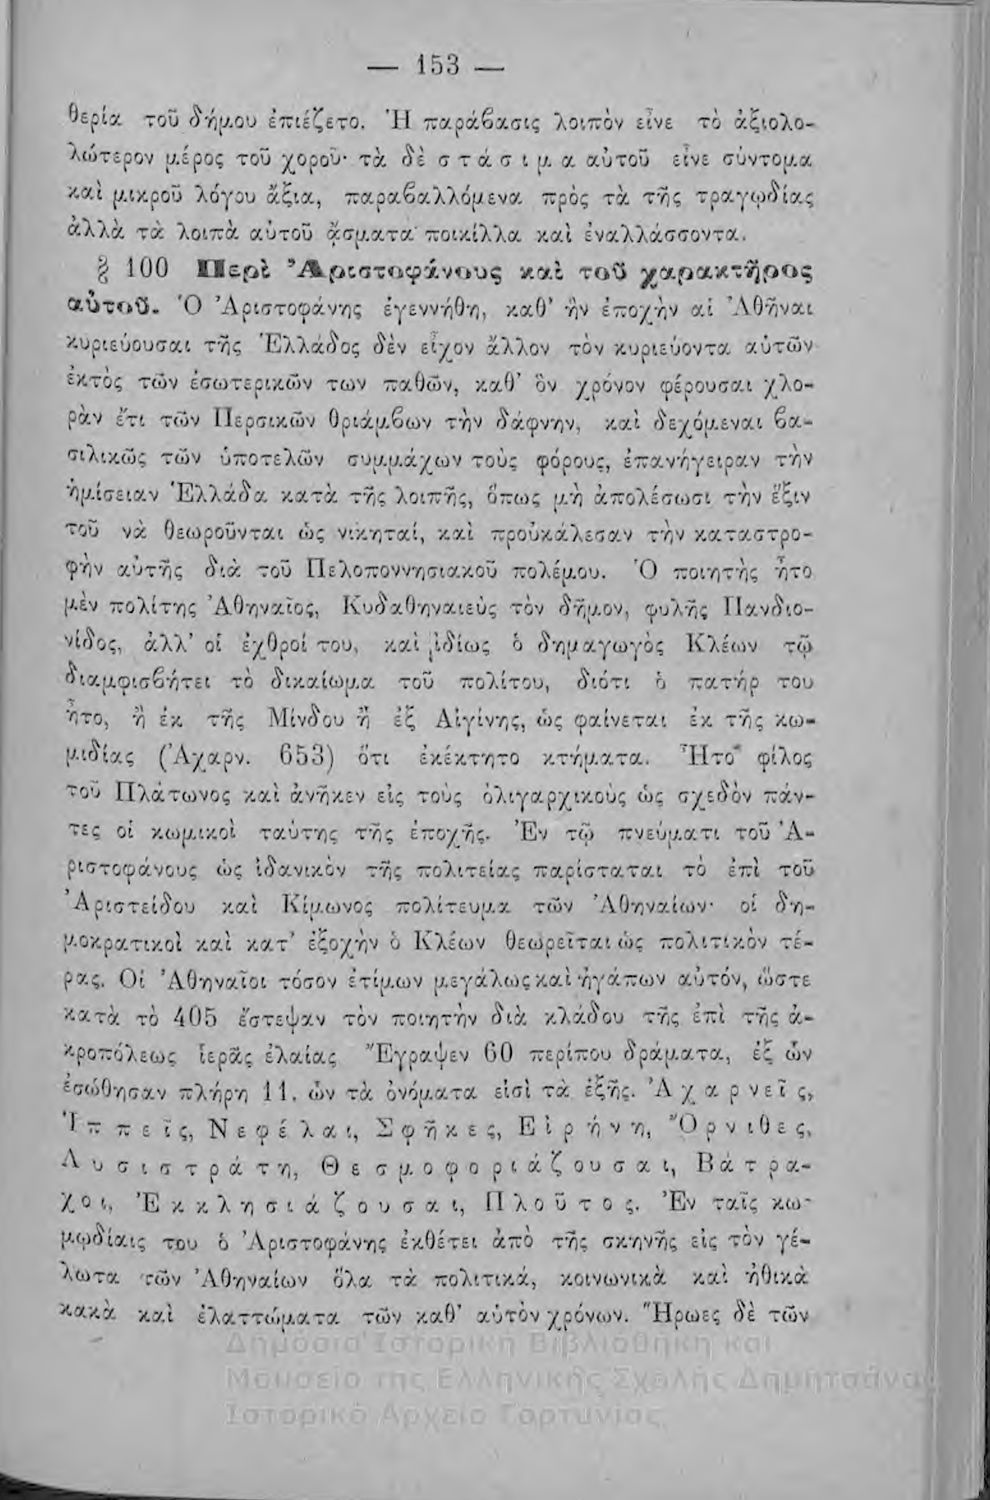 — 153 —
θερία τοῦ δήμου ἐπιέζετο. Ἡ παράβασις λοιπὸν εἶνε τὸ ἀξιολο-
λώτερον μέρος τοῦ χοροῦ· τὰ δὲ στάσιμα αὐτοῦ εἶνε σύντομα
καὶ μικροῦ λόγου ἄξια, παραβαλλόμενα πρὸς τὰ τῆς τραγῳδίας
ἀλλὰ τὰ λοιπὰ αὐτοῦ ᾄσματα ποικίλλα καὶ ἐναλλάσσοντα.
§ 100 Περὶ Ἀριστοφάνους καὶ τοῦ χαρακτῆρος
αὐτοῦ. Ὁ Ἀριστοφάνης ἐγεννήθη, καθ’ ἣν ἐποχὴν αἱ Ἀθῆναι
κυριεύουσαι τῆς Ἑλλάδος δὲν εἶχον ἄλλον τὸν κυριεύοντα αὐτῶν
ἐκτὸς τῶν ἐσωτερικῶν των παθῶν, καθ’ ὃν χρόνον φέρουσαι χλο-
ρὰν ἔτι τῶν Περσικῶν θριάμβων τὴν δάφνην, καὶ δεχόμεναι βα-
σιλικῶς τῶν ὑποτελῶν συμμάχων τοὺς φόρους, ἐπανήγειραν τὴν
ἡμίσειαν Ἑλλάδα κατὰ τῆς λοιπῆς, ὅπως μὴ ἀπολέσωσι τὴν ἕξιν
τοῦ νὰ θεωροῦνται ὡς νικηταί, καὶ προὐκάλεσαν τὴν καταστρο-
φὴν αὐτῆς διὰ τοῦ Πελοποννησιακοῦ πολέμου. Ὁ ποιητὴς ἦτο
μὲν πολίτης Ἀθηναῖος, Κυδαθηναιεὺς τὸν δῆμον, φυλῆς Πανδιο-
νίδος, ἀλλ’ οἱ ἐχθροί του, καὶ ἰδίως ὁ δημαγωγὸς Κλέων τῷ
διαμφισβήτει τὸ δικαίωμα τοῦ πολίτου, διότι ὁ πατήρ του
ἦτο, ἢ ἐκ τῆς Μίνδου ἢ ἐξ Αἰγίνης, ὡς φαίνεται ἐκ τῆς κω-
μιδίας (Ἀχαρν. 653) ὅτι ἐκέκτητο κτήματα. Ἦτο φίλος
τοῦ Πλάτωνος καὶ ἀνῆκεν εἰς τοὺς ὀλιγαρχικοὺς ὡς σχεδὸν πάν-
τες οἱ κωμικοὶ ταύτης τῆς ἐποχῆς. Ἐν τῷ πνεύματι τοῦ Ἀ-
ριστοφάνους ὡς ἰδανικὸν τῆς πολιτείας παρίσταται τὸ ἐπὶ τοῦ
Ἀριστείδου καὶ Κίμωνος πολίτευμα τῶν Ἀθηναίων· οἱ δη-
μοκρατικοὶ καὶ κατ’ ἐξοχὴν ὁ Κλέων θεωρεῖται ὡς πολιτικὸν τέ-
ρας. Οἱ Ἀθηναῖοι τόσον ἐτίμων μεγάλως καὶ ἠγάπων αὐτόν, ὥστε
κατὰ τὸ 405 ἔστεψαν τὸν ποιητὴν διὰ κλάδου τῆς ἐπὶ τῆς ἀ-
κροπόλεως ἱερᾶς ἐλαίας Ἔγραψεν 60 περίπου δράματα, ἐξ ὧν
ἐσώθησαν πλήρη 11. ὧν τὰ ὀνόματα εἰσὶ τὰ ἑξῆς. Ἀχαρνεῖς,
Ἱππεῖς, Νεφέλαι, Σφῆκες, Εἰρήνη, Ὄρνιθες,
Λυσιστράτη, Θεσμοφοριάζουσαι, Βάτρα-
χοι, Ἐκκλησιάζουσαι, Πλοῦτος. Ἐν ταῖς κω-
μῳδίαις του ὁ Ἀριστοφάνης ἐκθέτει ἀπὸ τῆς σκηνῆς εἰς τὸν γέ-
λωτα τῶν Ἀθηναίων ὅλα τὰ πολιτικά, κοινωνικὰ καὶ ἠθικὰ
κακὰ καὶ ἐλαττώματα τῶν καθ’ αὑτὸν χρόνων. Ἥρωες δὲ τῶν
Δημόσια Ιστορική Βιβλιοθήκη και
Μουσείο της Ελληνικής Σχολής Δημητσάνας
Ιστορικό Αρχείο Γορτυνίας